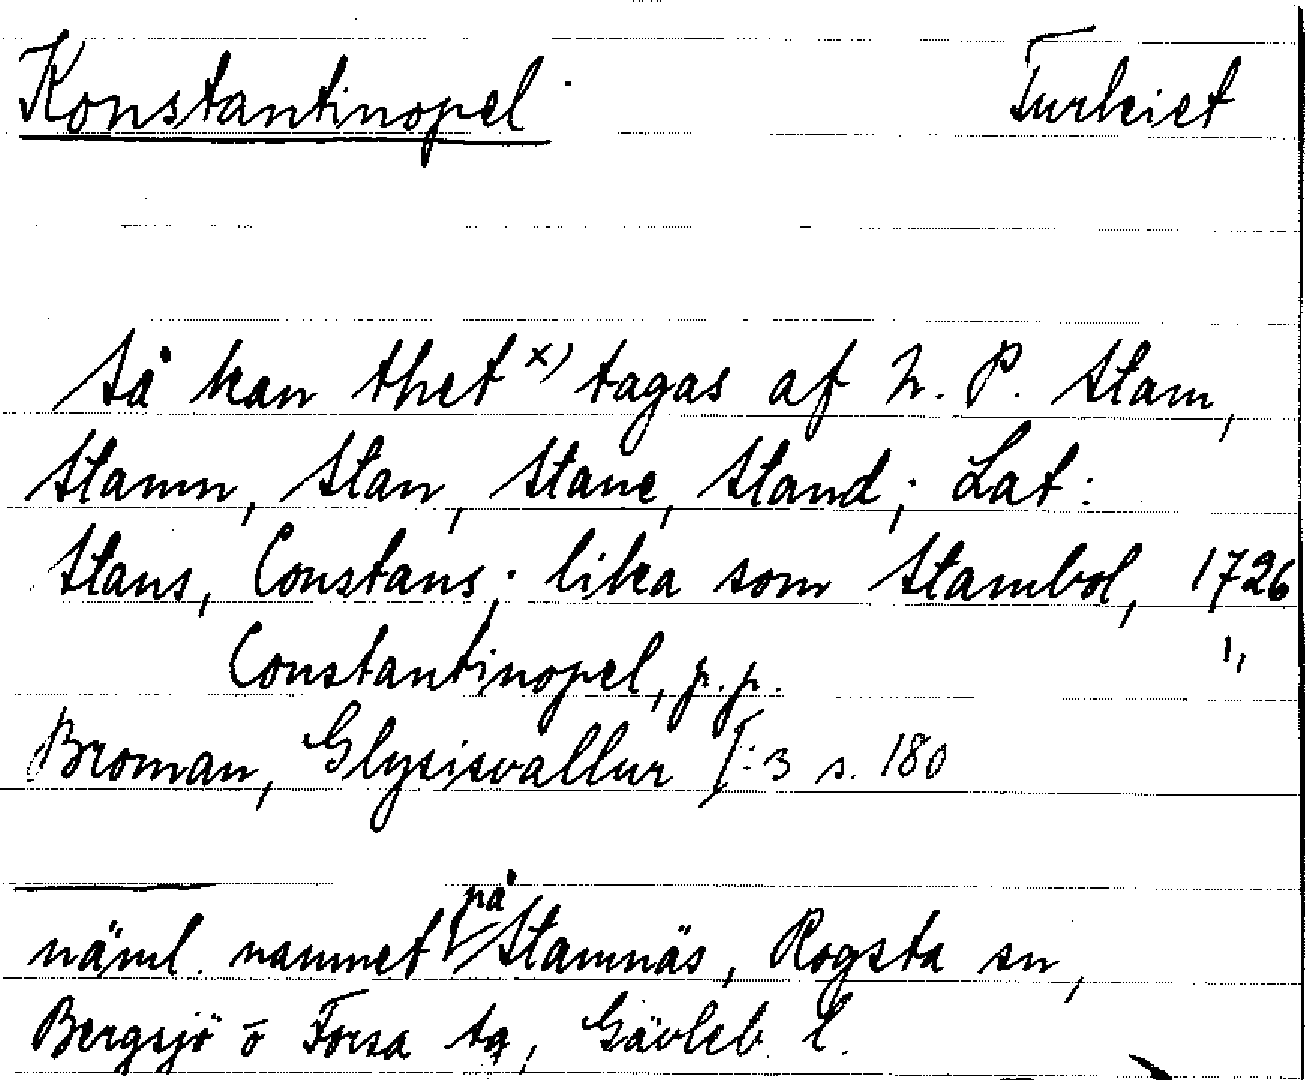 Konstantinopel. Turkiet
Så kan thet x) tagas af N. P. Stam,
Stamn, Stan, Stane, Stand; Lat:
Stans, Constans; lika som Stambol, 1726
Constantinopel, p.p. 1,
Broman, Glysisvallur I:3 s. 180
näml. namnet på Stamnäs, Rogsta sn,
Bergsjö o Forsa tg, Gävleb. l.